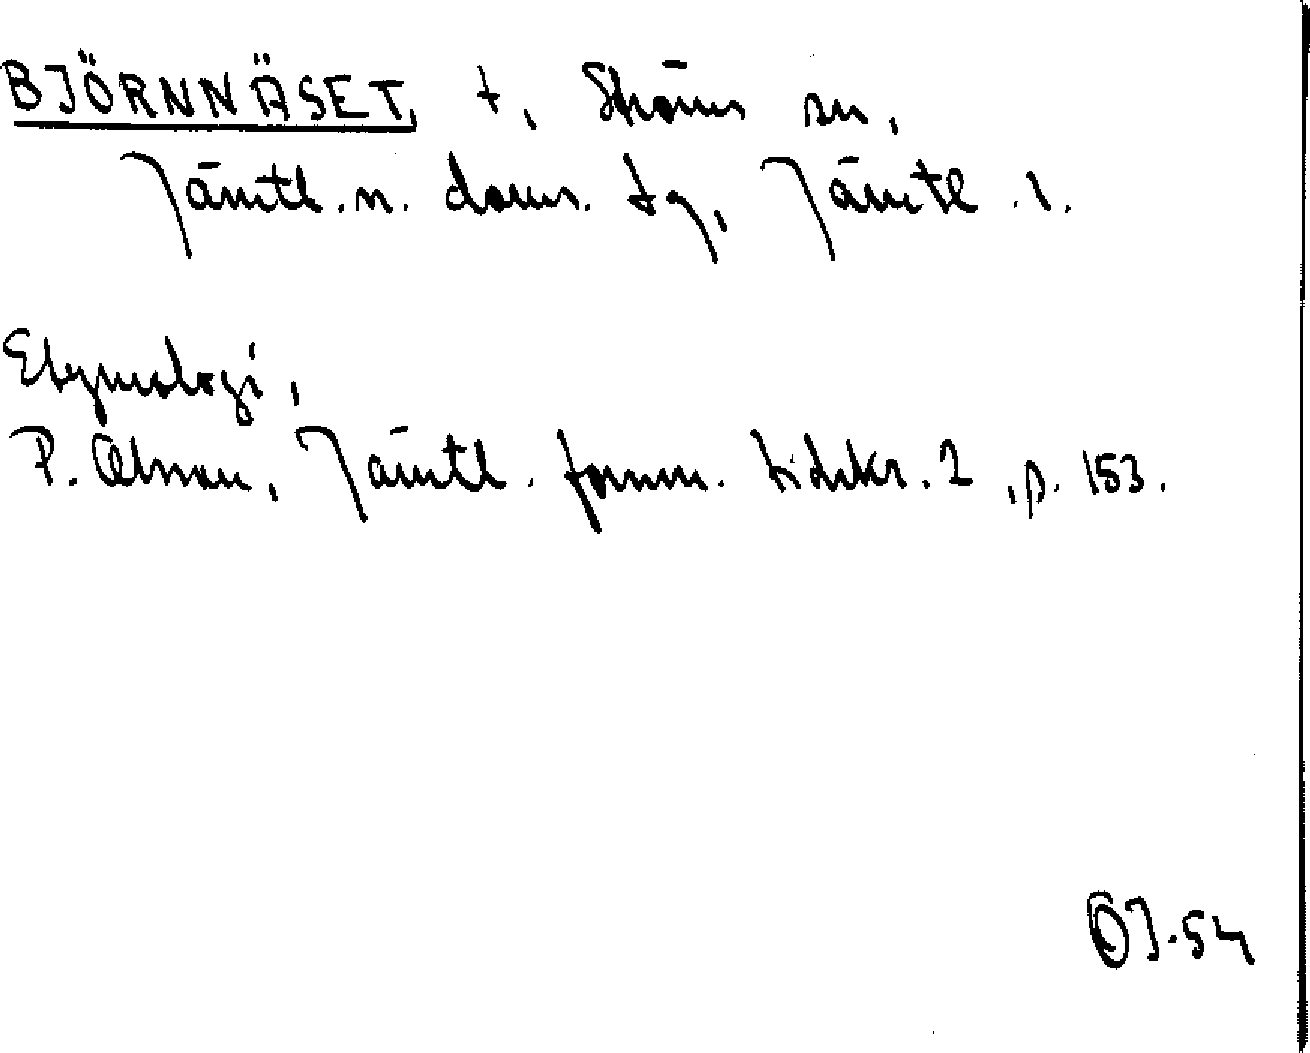 BJÖRNNÄSET, t, Ströms sn,
Jämtl. n. doms. tg, Jämtl. l.
Etymologi,
P. Olsson, Jämtl. fornm. tidskr. 2, p. 153.
OJ.54